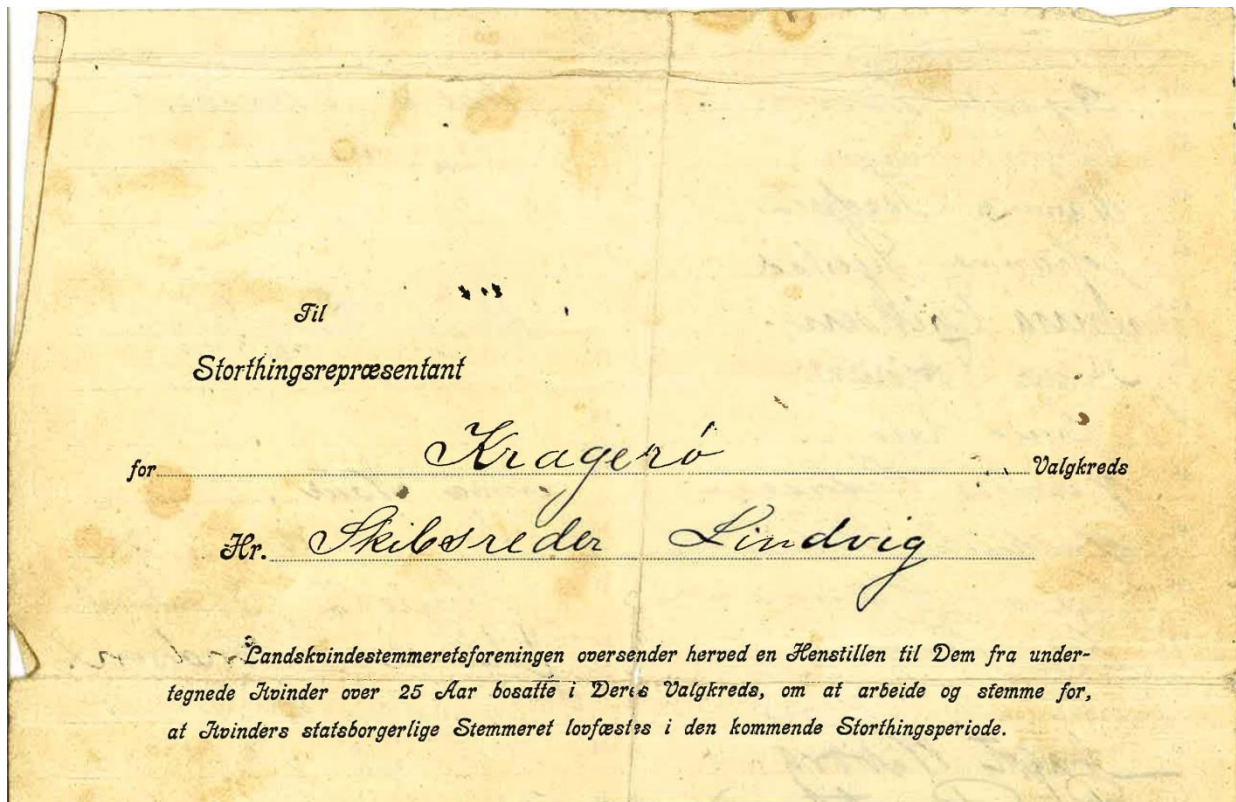 Til
Storthingsrepræsentant
for Kragerö Valgkreds
Hr. Skibsreder Lindvig
Landskvindestemmeretsforeningen oversender herved en Henstillen til Dem fra under-
tegnede Kvinder over 25 Aar bosatte i Deres Valgkreds, om at arbeide og stemme for,
at Kvinders statsborgerlige Stemmeret lovfæstes i den kommende Storthingsperiode.